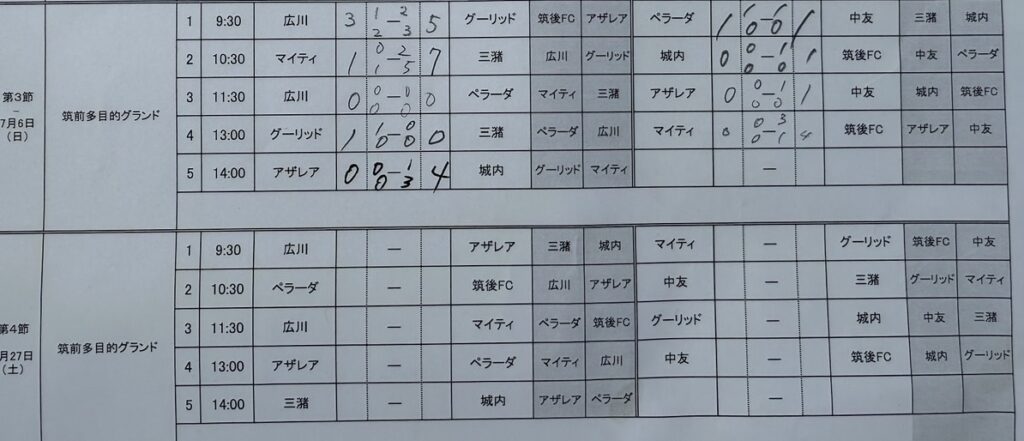 1 9:30 広川 3 1 — 2 5 グーリッド 筑後FC アザレア ペラーダ 1 1 — 1 1 中友 三潴 城内
2 3 0 0
2 10:30 マイティ 1 0 — 2 7 三潴 広川 グーリッド 城内 0 0 — 1 1 筑後FC 中友 ペラーダ
1 5 0 0
第3節
3 11:30 広川 0 0 — 0 0 ペラーダ マイティ 三潴 アザレア 0 0 — 1 1 中友 城内 筑後FC
0 0 0 0
7月6日
(日)
筑前多目的グランド
4 13:00 グーリッド 1 1 — 0 0 三潴 ペラーダ 広川 マイティ 0 0 — 3 4 筑後FC アザレア 中友
0 0 0 1
5 14:00 アザレア 0 0 — 1 4 城内 グーリッド マイティ —
0 3
1 9:30 広川 — アザレア 三潴 城内 マイティ — グーリッド 筑後FC 中友
2 10:30 ペラーダ — 筑後FC 広川 アザレア 中友 — 三潴 グーリッド マイティ
第4節
3 11:30 広川 — マイティ ペラーダ 筑後FC グーリッド — 城内 中友 三潴
月27日
(土)
筑前多目的グランド
4 13:00 アザレア — ペラーダ マイティ 広川 中友 — 筑後FC 城内 グーリッド
5 14:00 三潴 — 城内 アザレア ペラーダ —